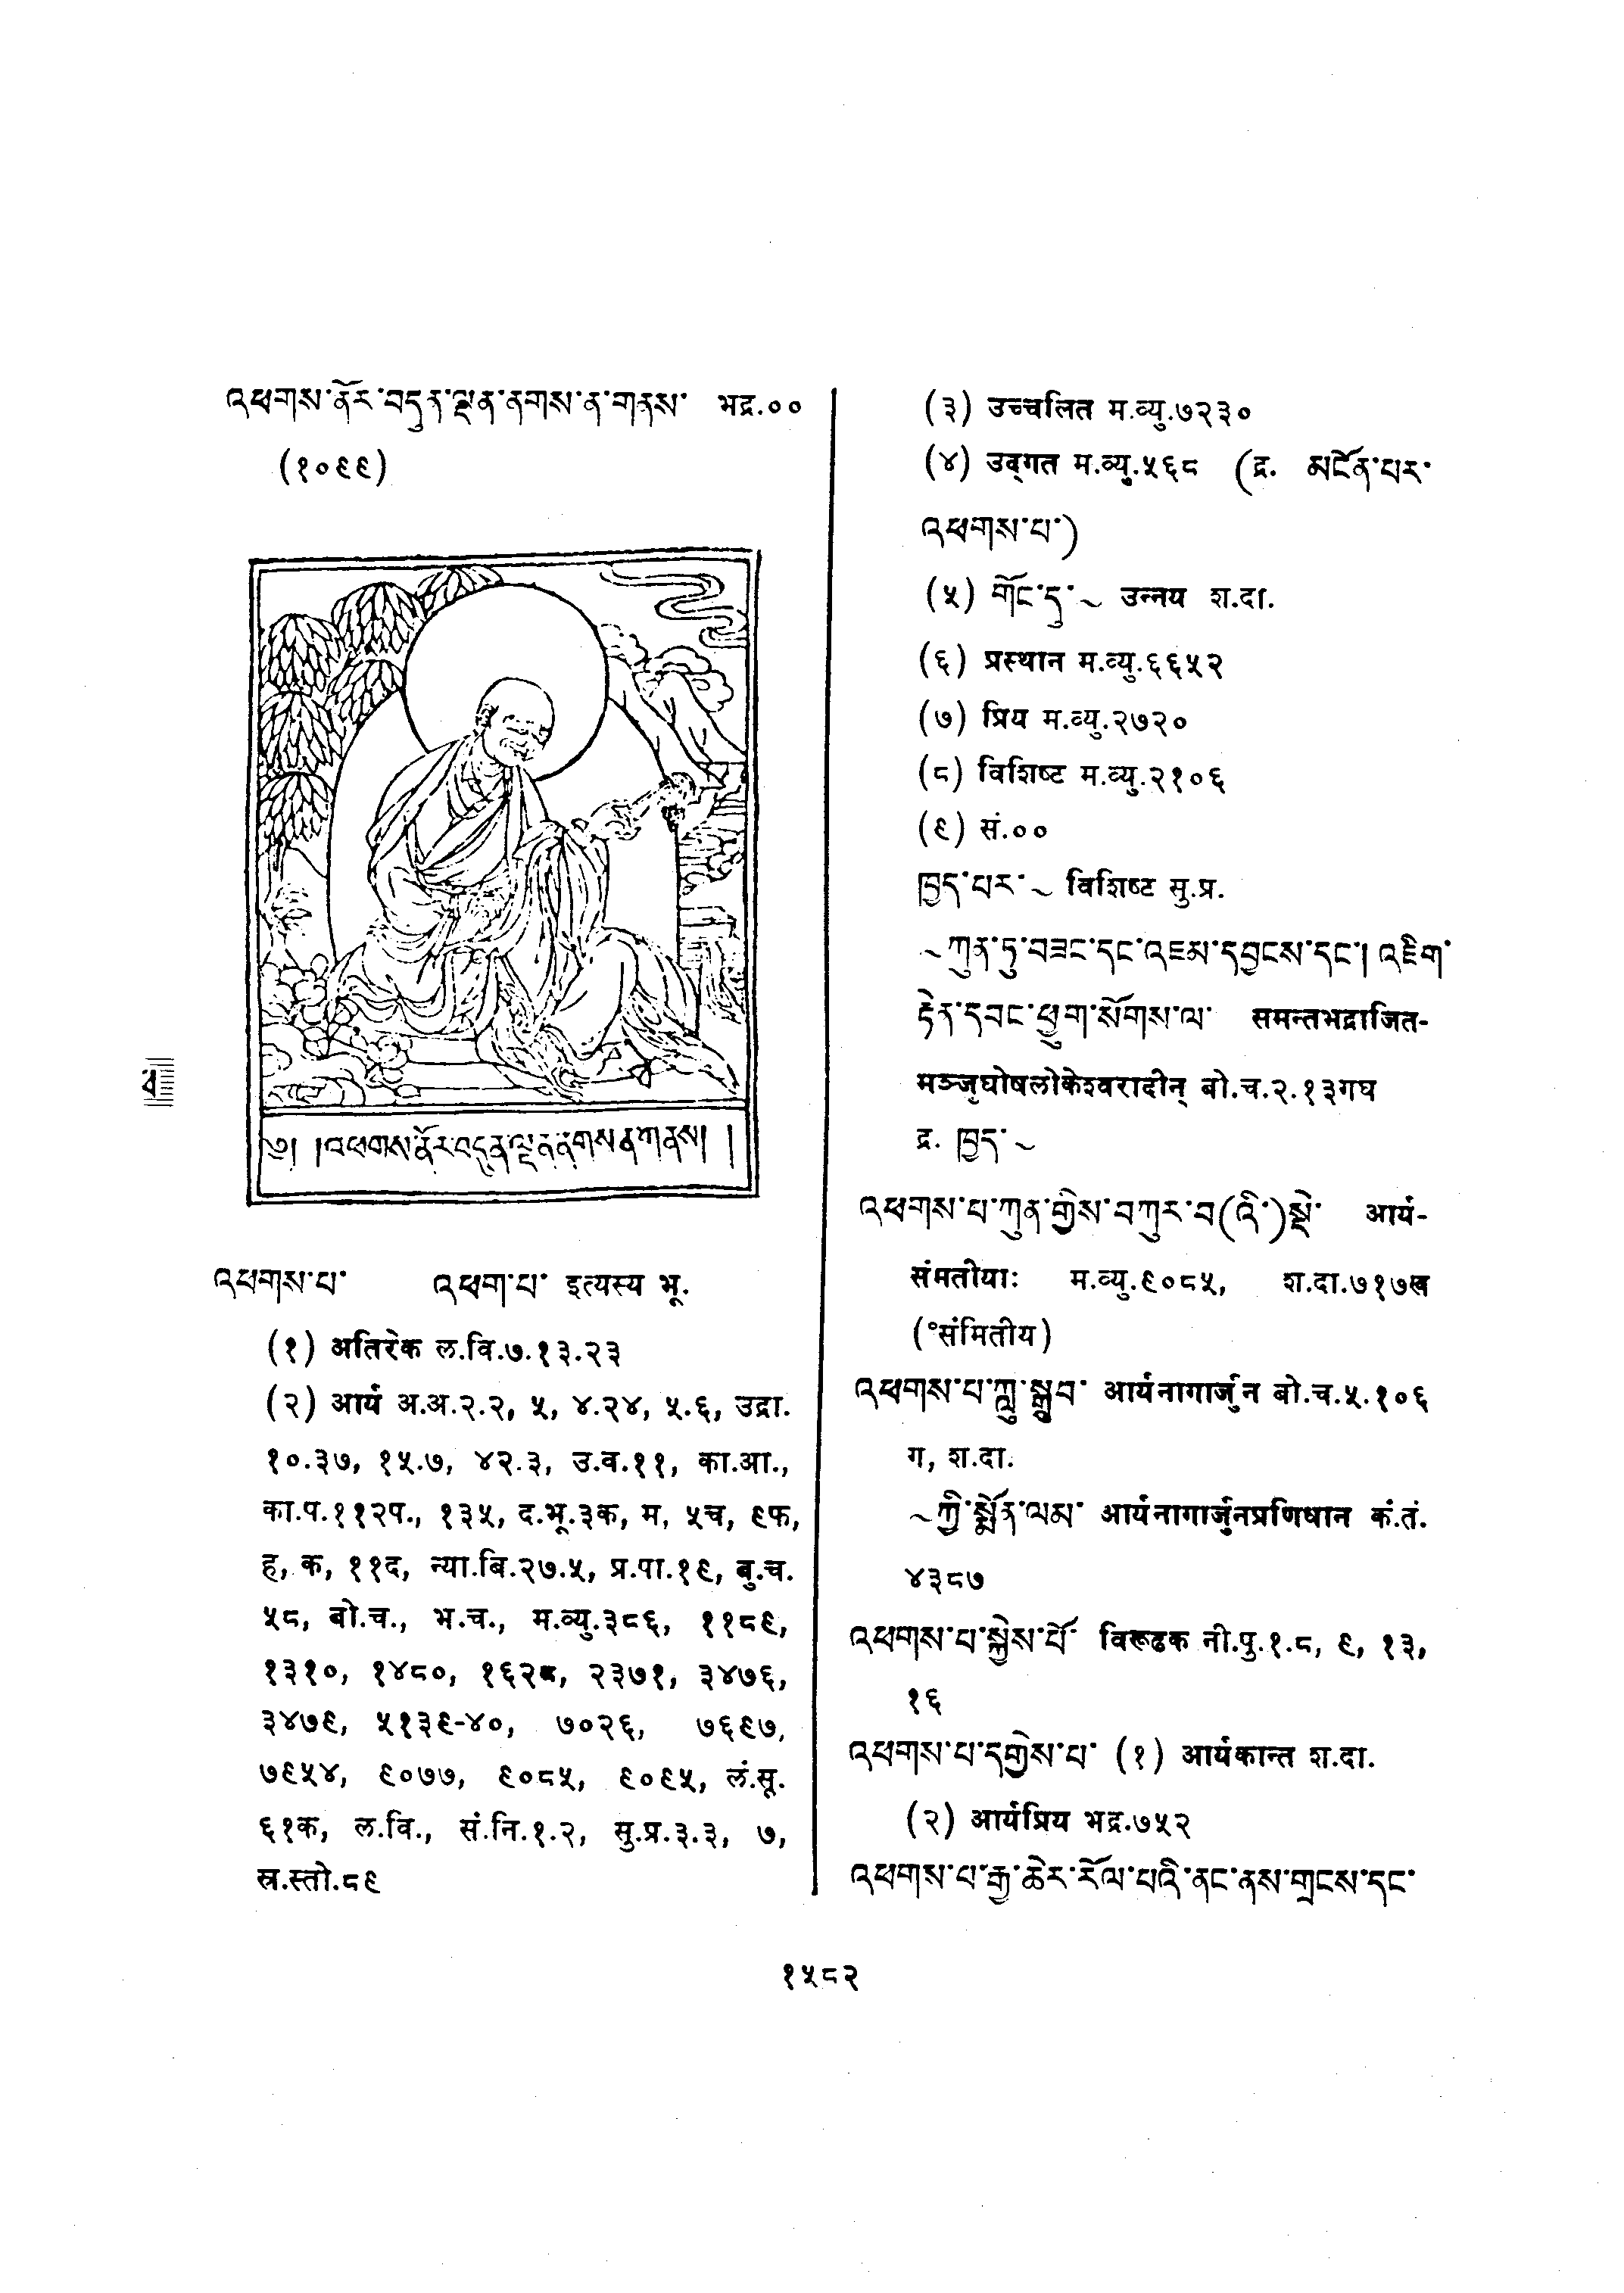 འཕགས་ནོར་བདུན་ལྡན་ནགས་ན་གནས་ भद्र.००
(१०९९)
༄། །འཕགས་ནོར་བདུན་ལྡན་ནགས་ན་གནས། །
འཕགས་པ་ འཕག་པ་ इत्यस्य भू.
(१) अतिरेक ल.वि.७.१३.२३
(२) आर्य अ.अ.२.२, ५, ४.२४, ५.६, उद्रा.
१०.३७, १५.७, ४२.३, उ.व.११, का.आ.,
का.प.११२प., १३५, द.भू.३क, म, ५च, ९फ,
ह, क, ११द, न्या.बि.२७.५, प्र.पा.१९, बु.च.
५८, बो.च., भ.च., म.व्यु.३८६, ११८९,
१३१०, १४८०, २३७१, ३४७६,
३४७९, ५१३९-४०, ७०२६, ७६९७,
७९५४, ९०७७, ९०८५, ९०९५, लं.सू.
६१क, ल.वि., सं.नि.१.२, सु.प्र.३.३, ७,
स्र.स्तो.८९
(३) उच्चलित म.व्यु.७२३०
(४) उद्गत म.व्यु.५६८ (द्र. མངོན་པར་
འཕགས་པ་)
(५) གོང་དུ་~ उन्नय श.दा.
(६) प्रस्थान म.व्यु.६६५२
(७) प्रिय म.व्यु.२७२०
(८) विशिष्ट म.व्यु.२१०६
(९) सं.००
ཁྱད་པར་~ विशिष्ट सु.प्र.
~ཀུན་ཏུ་བཟང་དང་འཇམ་དབྱངས་དང་། འཇིག་
རྟེན་དབང་ཕྱུག་སོགས་ལ་ समन्तभद्राजित-
मञ्जुघोषलोकेश्वरादीन् बो.च.२.१३गघ
द्र. ཁྱད་~
འཕགས་པ་ཀུན་གྱིས་བཀུར་བ(འི་)སྡེ་ आर्य-
संमतीयाः म.व्यु.९०८५, श.दा.७१७ख
(°संमितीय)
འཕགས་པ་ཀླུ་སྒྲུབ་ आर्यनागार्जुन बो.च.५.१०६
ग, श.दा.
~ཀྱི་སྨོན་ལམ་ आर्यनागार्जुनप्रणिधान कं.तं.
४३८७
འཕགས་པ་སྐྱེས་པོ་ विरूढक नी.पु.१.८, ९, १३,
१६
འཕགས་པ་དགྱེས་པ་ (१) आर्यकान्त श.दा.
(२) आर्यप्रिय भद्र.७५२
འཕགས་པ་རྒྱ་ཆེར་རོལ་པའི་ནང་ནས་གྲངས་དང་
१५८२